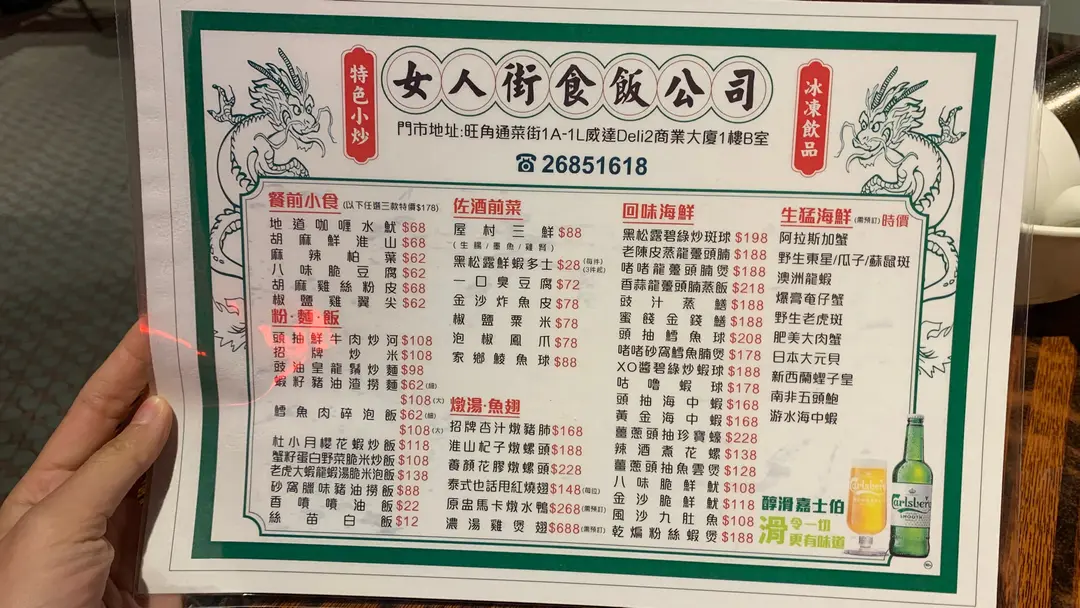 特色小炒
女人街食飯公司
冰凍飲品
門市地址:旺角通菜街1A-1L威達Deli2商業大廈1樓B室
☎ 26851618
餐前小食 (以下任選三款特價$178)
地道咖喱水魷 $68
胡麻鮮淮山 $68
麻辣柏葉 $62
八味脆豆腐 $62
胡麻雞絲粉皮 $68
椒鹽雞翼尖 $62
粉·麵·飯
頭抽鮮牛肉炒河 $108
招牌炒米 $108
豉油皇龍鬚炒麵 $98
蝦籽豬油渣撈麵 $62(細)
$108(大)
鱈魚肉碎泡飯 $62(細)
$108(大)
杜小月櫻花蝦炒飯 $118
蟹籽蛋白野菜脆米炒飯 $108
老虎大蝦龍蝦湯脆米泡飯 $138
砂窩臘味豬油撈飯 $88
香噴噴油飯 $22
絲苗白飯 $12
佐酒前菜
屋村三鮮 $88
(生腸/墨魚/雞腎)
黑松露鮮蝦多士 $28 (每件)(3件起)
一口臭豆腐 $72
金沙炸魚皮 $78
椒鹽粟米 $78
泡椒鳳爪 $78
家鄉鯪魚球 $88
燉湯·魚翅
招牌杏汁燉豬肺 $168
淮山杞子燉螺頭 $188
養顏花膠燉螺頭 $228
泰式也話甩紅燒翅 $148(每位)
原盅馬卡燉水鴨 $268(需預訂)
濃湯雞煲翅 $688(需預訂)
回味海鮮
黑松露碧綠炒斑球 $198
老陳皮蒸龍躉頭腩 $188
啫啫龍躉頭腩煲 $188
香蒜龍躉頭腩蒸飯 $218
豉汁蒸鱔 $188
蜜餞金錢鱔 $188
頭抽鱈魚球 $208
啫啫砂窩鱈魚腩煲 $178
XO醬碧綠炒蝦球 $188
咕嚕蝦球 $178
頭抽海中蝦 $168
黃金海中蝦 $168
薑蔥頭抽珍寶蠔 $228
辣酒煮花螺 $138
薑蔥頭抽魚雲煲 $128
八味脆鮮魷 $108
金沙脆鮮魷 $118
風沙九肚魚 $108
乾煸粉絲蝦煲 $188
生猛海鮮 (需預訂) 時價
阿拉斯加蟹
野生東星/瓜子/蘇鼠斑
澳洲龍蝦
爆膏奄仔蟹
野生老虎斑
肥美大肉蟹
日本大元貝
新西蘭蟶子皇
南非五頭鮑
游水海中蝦
醇滑嘉士伯
滑令一切
更有味道
Carlsberg
Carlsberg
SMOOTH